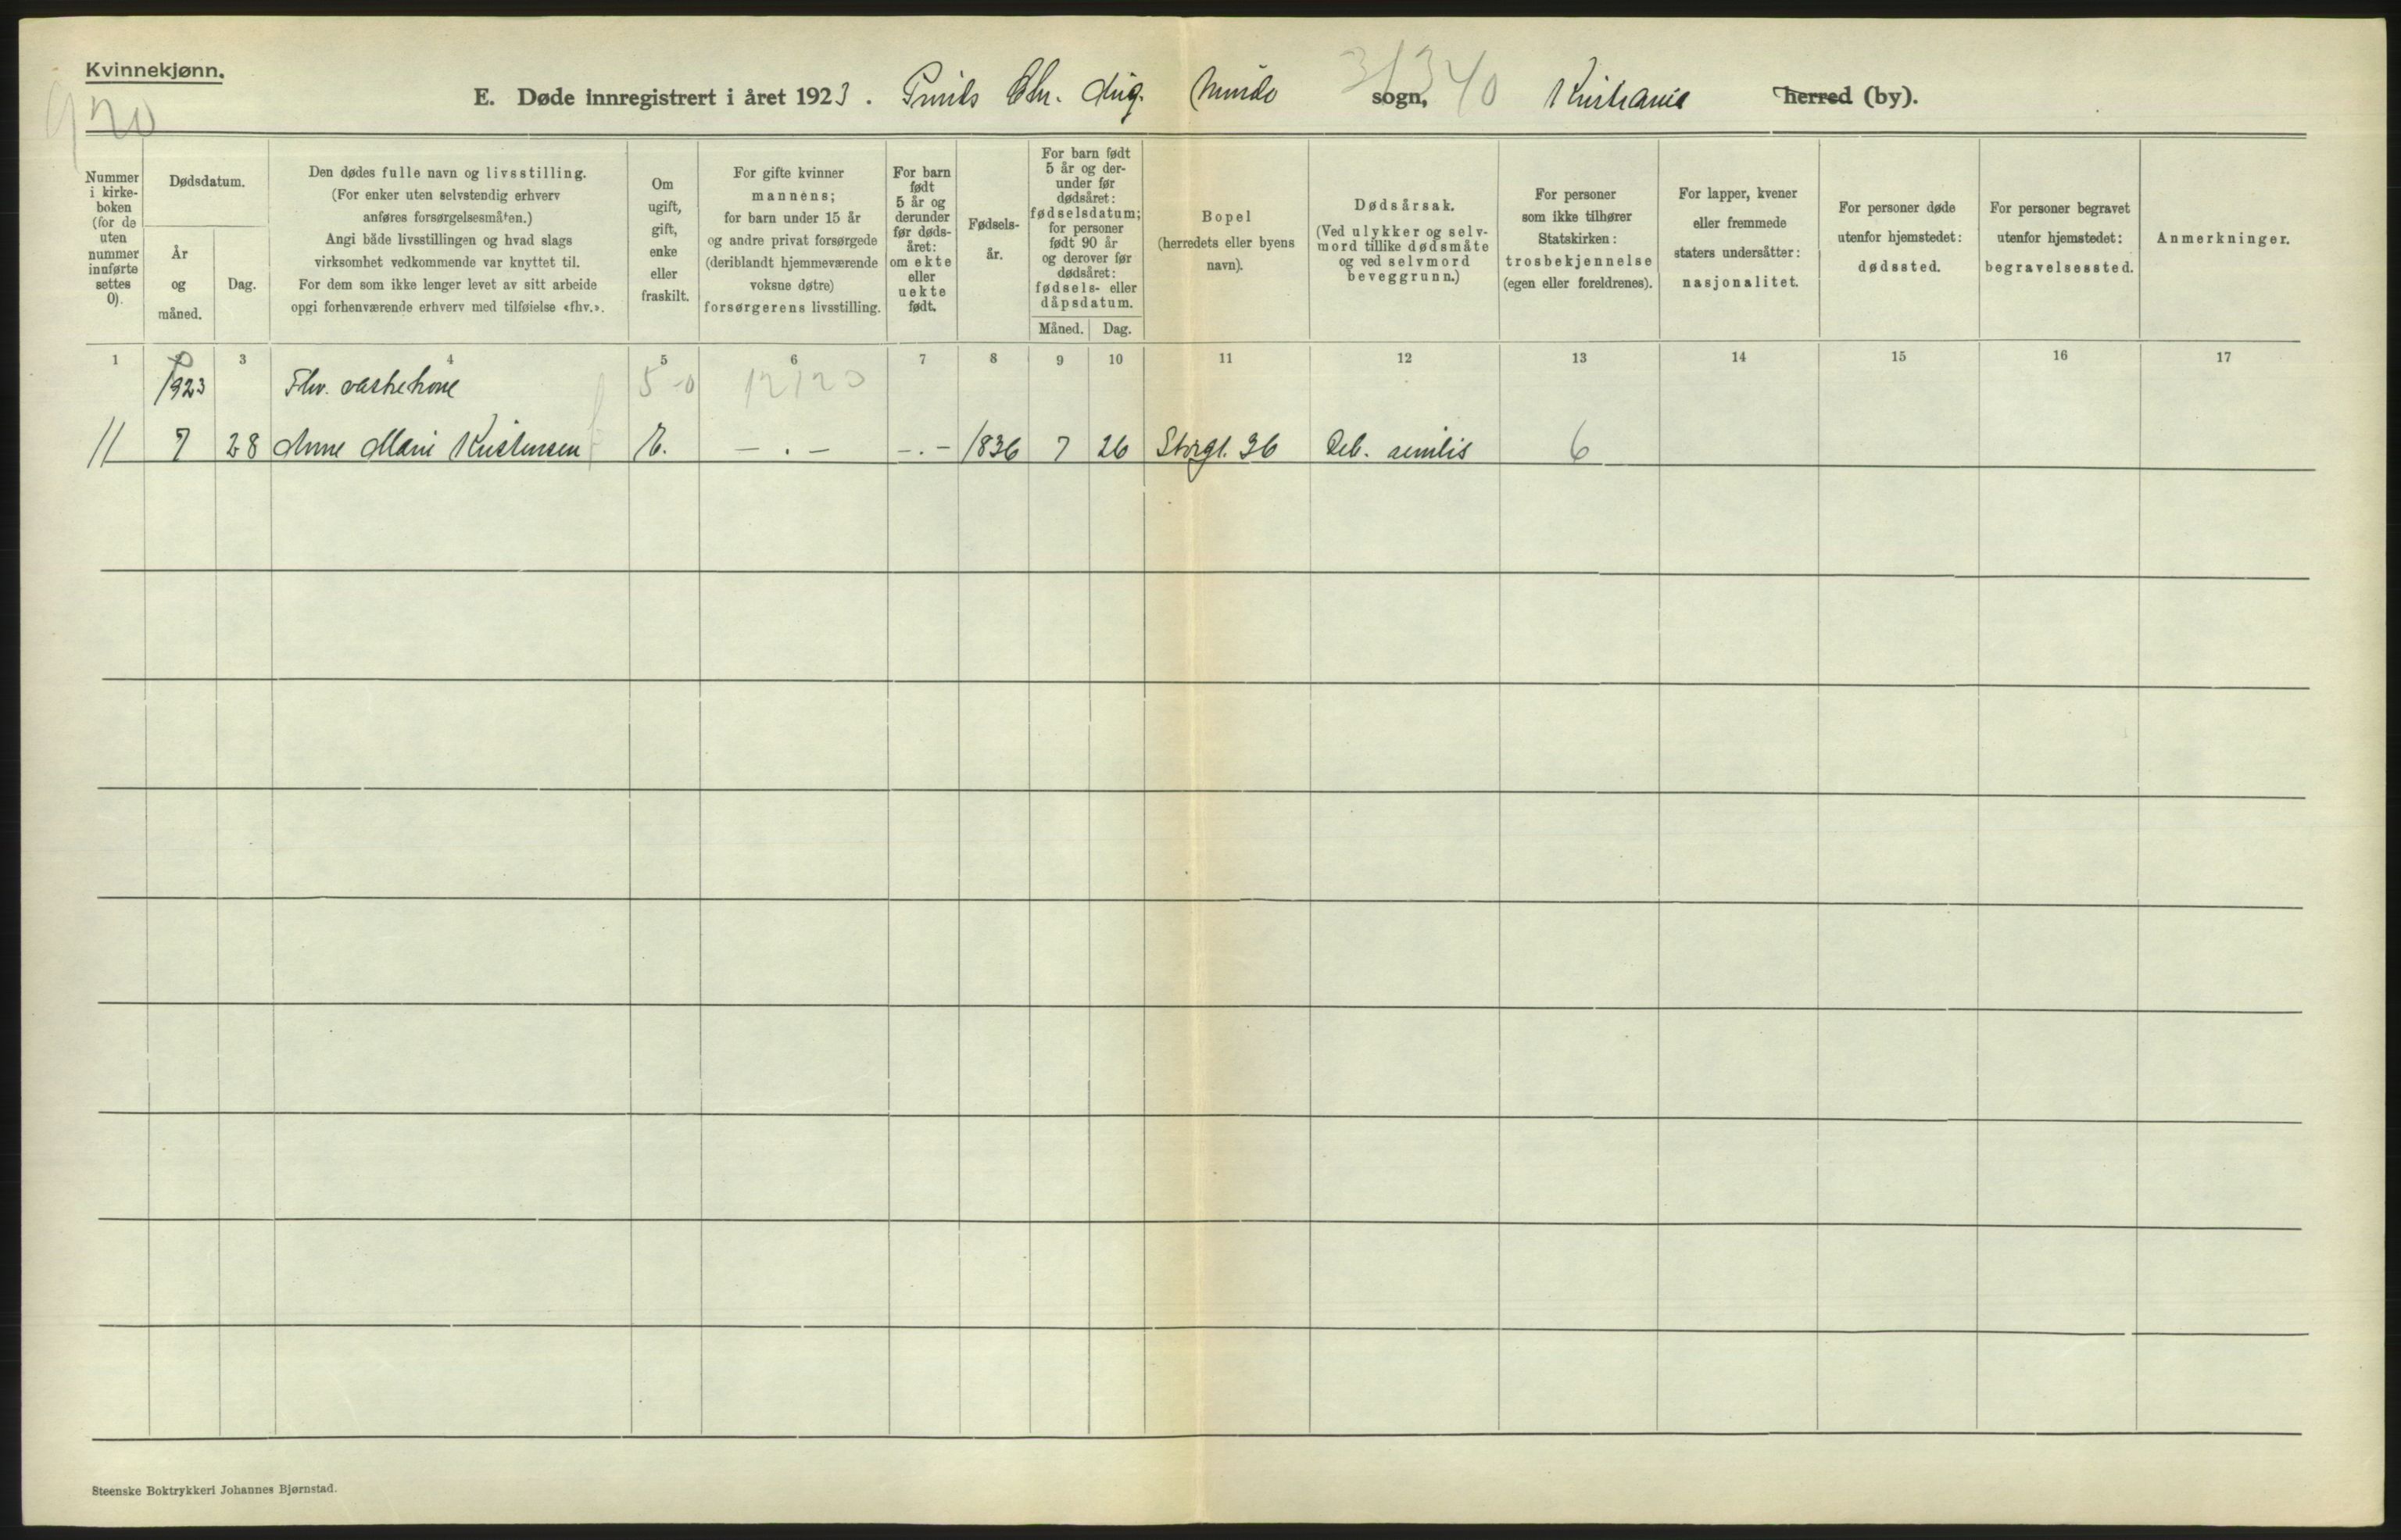 Kvinnekjønn.
920
E. Døde innregistrert i året 1923. Prinds Chr. Aug. Minde sogn, 31340 Kristiania herred (by).
Nummer i kirke- boken (for de uten nummer innførte settes 0).
Dødsdatum.
År og måned.
Dag.
Den dødes fulle navn og livsstilling.
(For enker uten selvstendig erhverv
anføres forsørgelsesmåten.)
Angi både livsstillingen og hvad slags
virksomhet vedkommende var knyttet til.
For dem som ikke lenger levet av sitt arbeide
opgi forhenværende erhverv med tilføielse «fhv.».
Om ugift, gift, enke eller fraskilt.
For gifte kvinner
mannens;
for barn under 15 år
og andre privat forsørgede
(deriblandt hjemmeværende
voksne døtre)
forsørgerens livsstilling.
For barn født 5 år og derunder før døds- året: om ekte eller uekte født.
Fødsels- år.
For barn født 5 år og der- under før dødsåret: fødselsdatum; for personer født 90 år og derover før dødsåret: fødsels- eller dåpsdatum.
Måned. Dag.
Bopel
(herredets eller byens
navn).
Dødsårsak.
(Ved ulykker og selv-
mord tillike dødsmåte
og ved selvmord
beveggrunn.)
For personer
som ikke tilhører
Statskirken:
trosbekjennelse
(egen eller foreldrenes).
For lapper, kvener
eller fremmede
staters undersåtter:
nasjonalitet.
For personer døde
utenfor hjemstedet:
dødssted.
For personer begravet
utenfor hjemstedet:
begravelsessted.
Anmerkninger.
1 2 3 4 5 6 7 8 9 10 11 12 13 14 15 16 17
1923 Fhv. vaskekone 5-0 12120
11 7 28 Anne Marie Kristensen E. - . - - . - 1836 7 26 Storgt. 36 Deb. senilis 6
Steenske Boktrykkeri Johannes Bjørnstad.